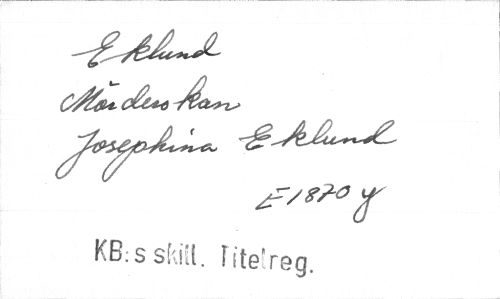 Eklund
Mörderskan
Josephina Eklund
E1870y
KB:s skill. Titelreg.